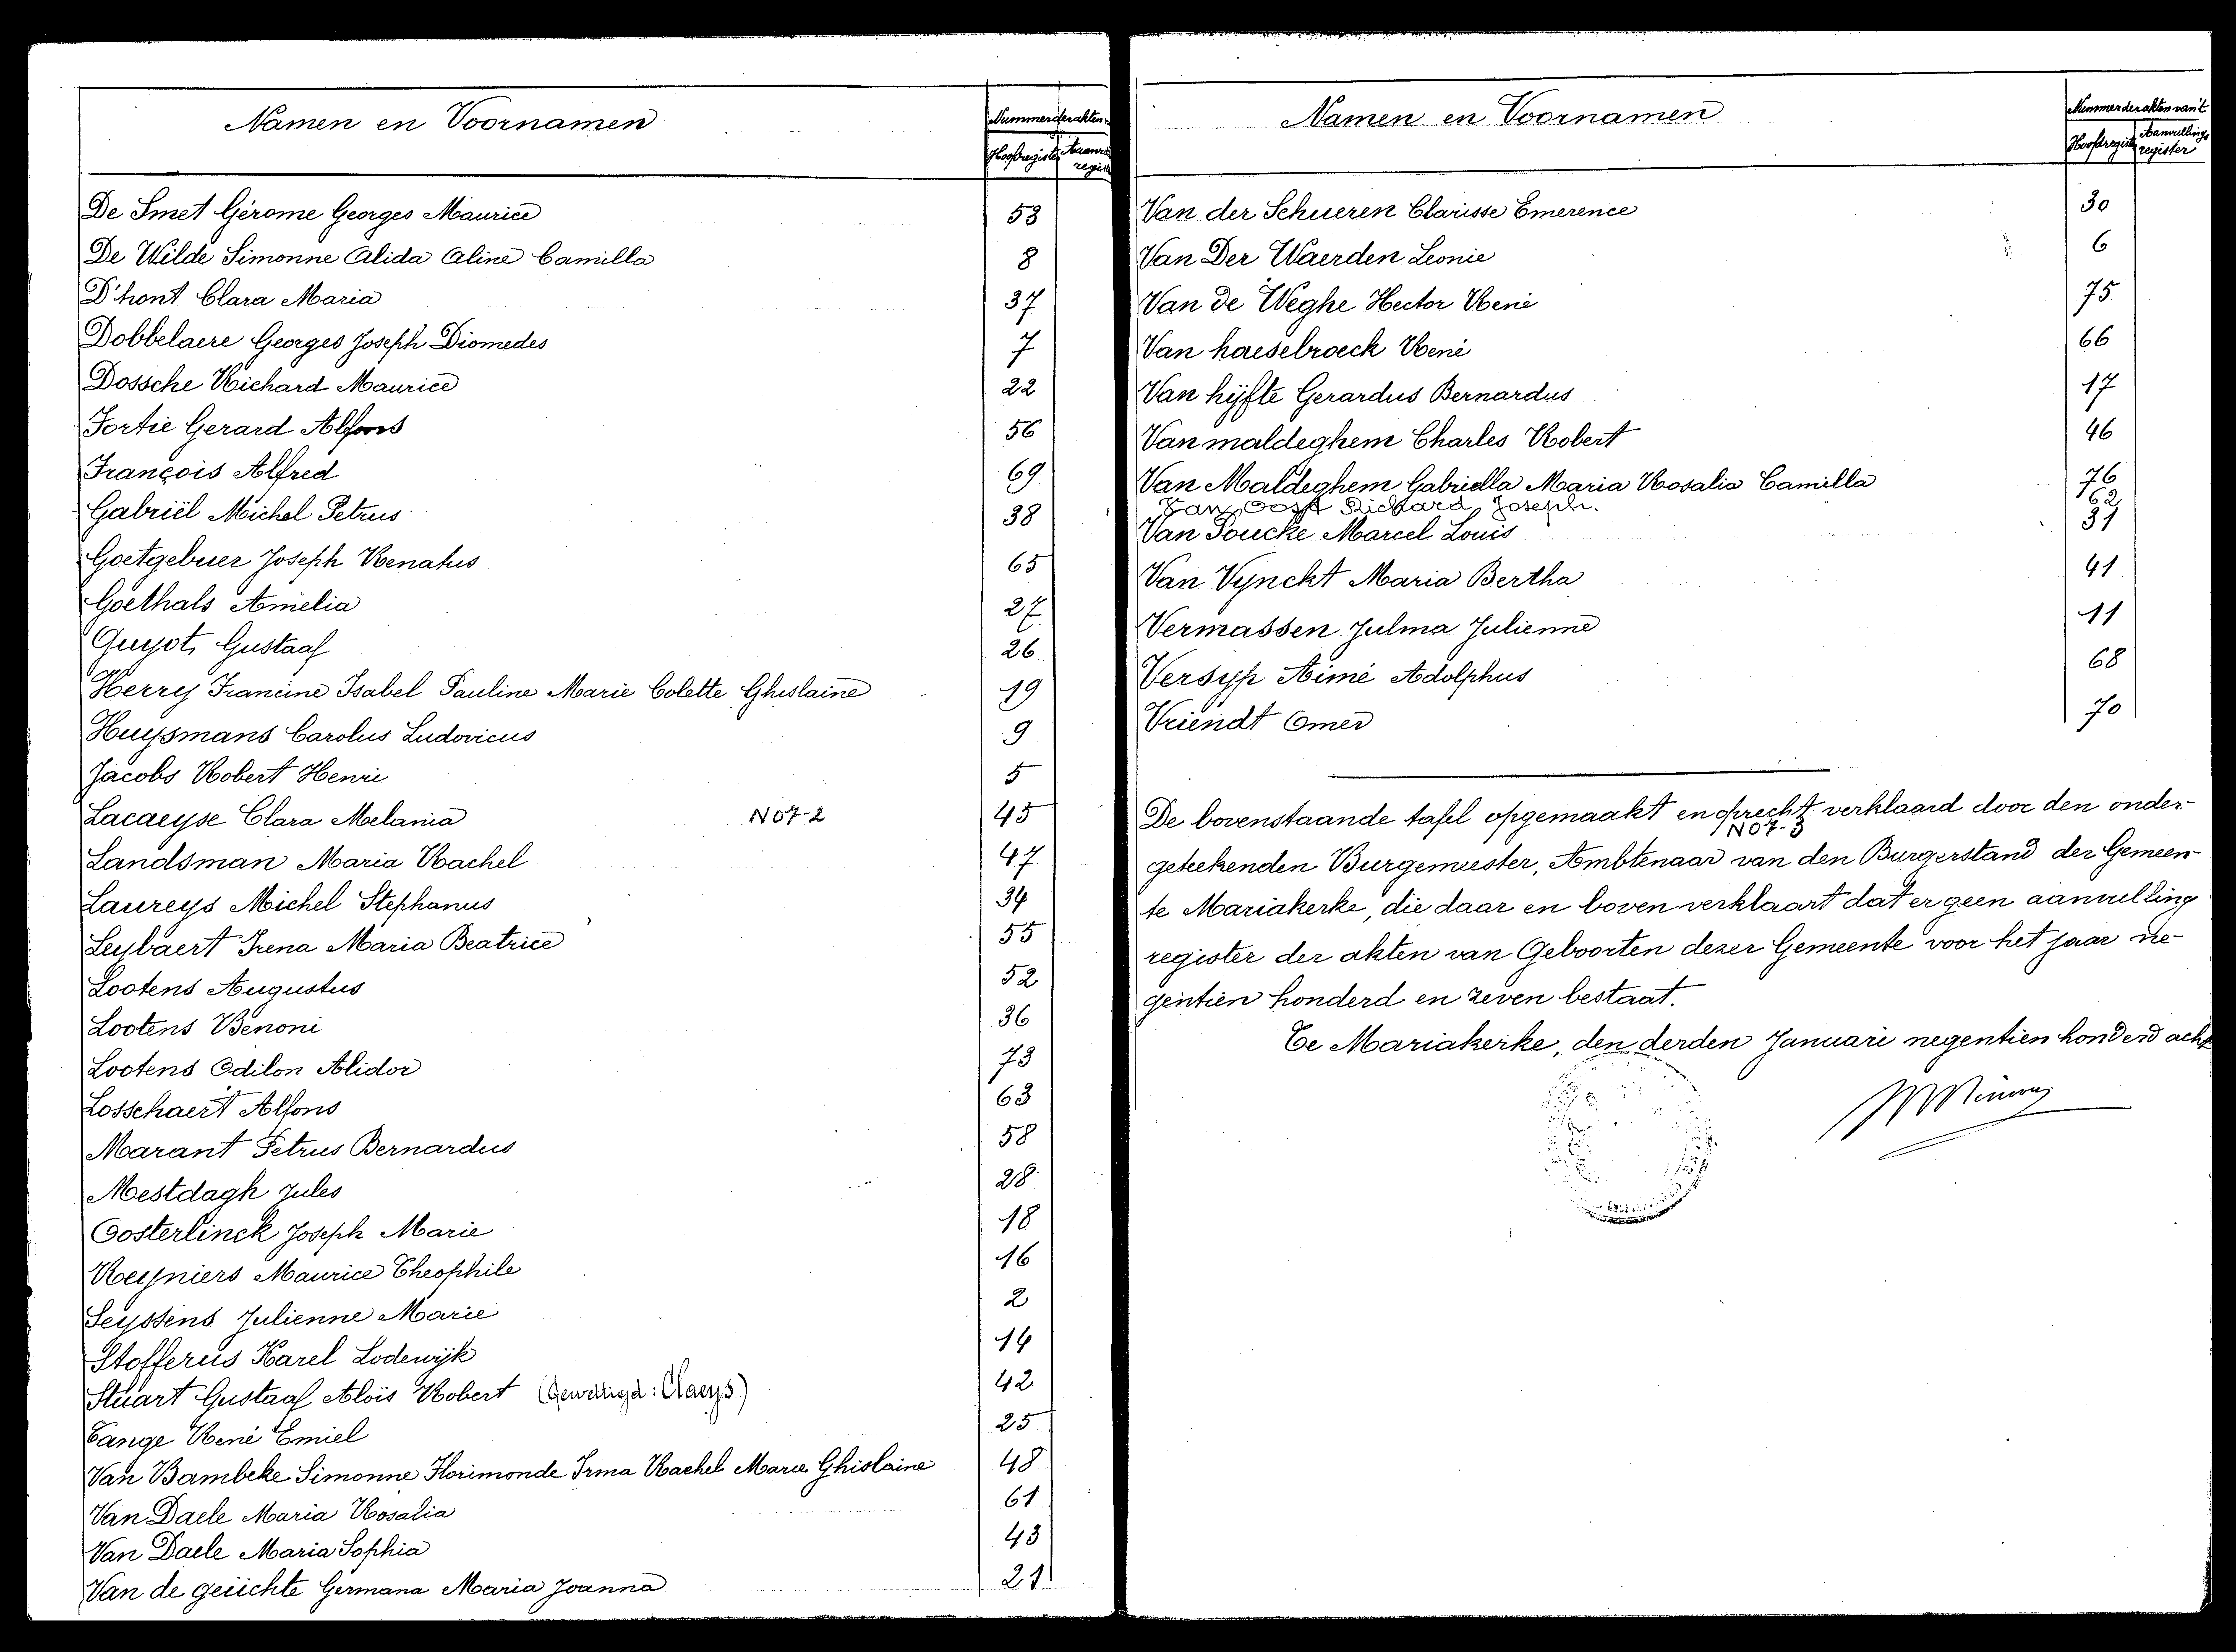 Namen en Voornamen
Nummer der akten
Hoofdregister
De Smet Gérome Georges Maurice 53
De Wilde Simonne Alida Aline Camilla 8
D'hont Clara Maria 37
Dobbelaere Georges Joseph Diomedes 7
Dossche Richard Maurice 22
Fortie Gerard Alfons 56
François Alfred 69
Gabriël Michel Petrus 38
Goetgebuer Joseph Renatus 65
Goethals Amelia 27
Guyot Gustaaf 26
Herry Francine Isabel Pauline Marie Colette Ghislaine 19
Huysmans Carolus Ludovicus 9
Jacobs Robert Henri 5
Lacaeyse Clara Melania N07-2 45
Landsman Maria Rachel 47
Laureys Michel Stephanus 34
Leybaert Irena Maria Beatrice 55
Lootens Augustus 52
Lootens Benoni 36
Lootens Odilon Alidor 73
Losschaert Alfons 63
Marant Petrus Bernardus 58
Mestdagh Jules 28
Oosterlinck Joseph Marie 18
Reyniers Maurice Theophile 16
Seyssens Julienne Marie 2
Stofferus Karel Lodewijk 14
Stuart Gustaaf Aloïs Robert (Gewettigd: Claeys) 42
Tange René Emiel 25
Van Bambeke Simonne Florimonde Irma Rachel Marie Ghislaine 48
Van Daele Maria Rosalia 61
Van Daele Maria Sophia 43
Van de geüchte Germana Maria Joanna 21
Namen en Voornamen
Nummer der akten van't
Hoofdregister
Aanvullings
register
Van der Schueren Clarisse Emerence 30
Van Der Waerden Leonie 6
Van de Weghe Hector René 75
Van haesebroeck René 66
Van hijfte Gerardus Bernardus 17
Van maldeghem Charles Robert 46
Van Maldeghem Gabriella Maria Rosalia Camilla 76
Van Oost Richard Joseph. 62
Van Poucke Marcel Louis 31
Van Vynckt Maria Bertha 41
Vermassen Julma Julienne 11
Versyp Aimé Adolphus 68
Vriendt Omer 70
De bovenstaande tafel opgemaakt en oprecht verklaard door den onder-
N07-3
geteekenden Burgemeester, Ambtenaar van den Burgerstand der Gemeen-
te Mariakerke, die daar en boven verklaart dat er geen aanvulling
register der akten van Geboorten dezer Gemeente voor het jaar ne-
gentien honderd en zeven bestaat.
Te Mariakerke, den derden Januari negentien honderd acht